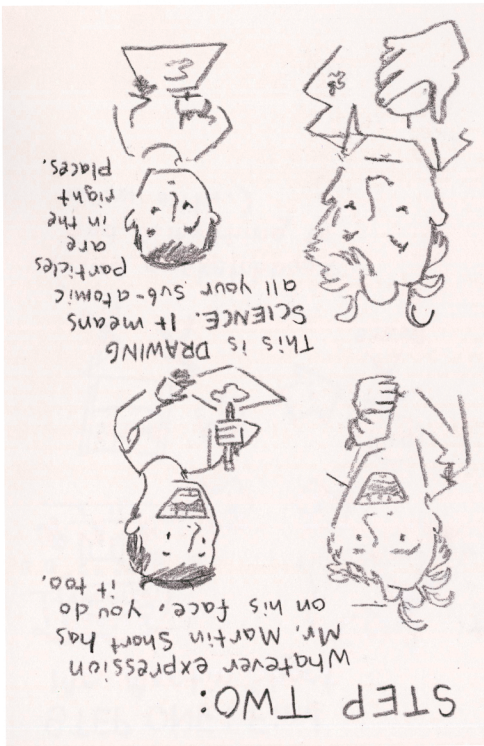 STEP TWO:
Whatever expression
Mr. Martin Short has
on his face, you do
it too.
This is DRAWING
SCIENCE. It means
all your sub-atomic
particles
are
in the
right
places.